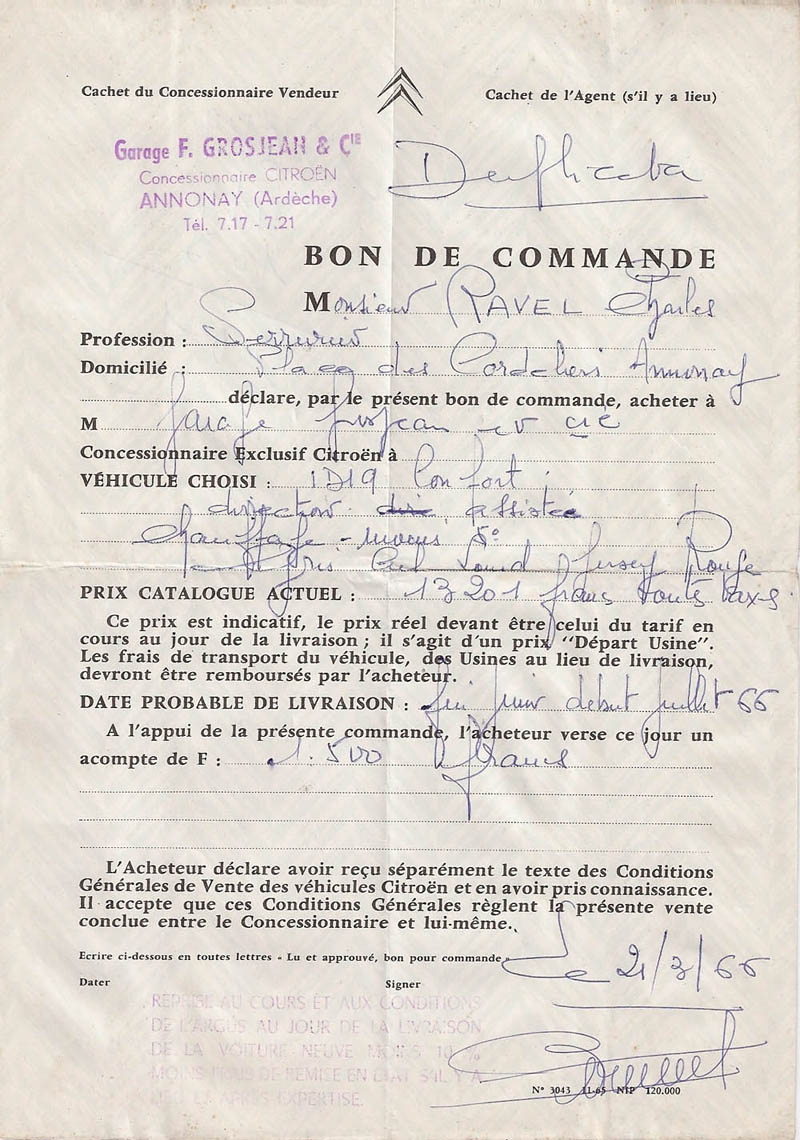 Cachet du Concessionnaire Vendeur
Cachet de l'Agent (s'il y a lieu)
Garage F. GROSJEAN & CIE
Concessionnaire CITROËN
ANNONAY (Ardèche)
Tél. 7.17 - 7.21
Duplicata
BON DE COMMANDE
Monsieur RAVEL Charles
Profession : Serrurier
Domicilié : Place des Cordeliers Annonay
déclare, par le présent bon de commande, acheter à
M Garage Grosjean et cie
Concessionnaire Exclusif Citroën à
VÉHICULE CHOISI : ID19 Confort
direction assistée
Chauffage - moins 5°
Gris Jersey Rouge
PRIX CATALOGUE ACTUEL : 13 201 francs toutes taxes
Ce prix est indicatif, le prix réel devant être celui du tarif en
cours au jour de la livraison ; il s'agit d'un prix "Départ Usine".
Les frais de transport du véhicule, des Usines au lieu de livraison,
devront être remboursés par l'acheteur.
DATE PROBABLE DE LIVRAISON : fin juin début juillet 66
A l'appui de la présente commande, l'acheteur verse ce jour un
acompte de F : 1.500 francs
L'Acheteur déclare avoir reçu séparément le texte des Conditions
Générales de Vente des véhicules Citroën et en avoir pris connaissance.
Il accepte que ces Conditions Générales règlent la présente vente
conclue entre le Concessionnaire et lui-même.
Ecrire ci-dessous en toutes lettres « Lu et approuvé, bon pour commande »
Le 21/3/66
Dater
Signer
REPRISE AU COURS ET AUX CONDITIONS
DE L'ARGUS AU JOUR DE LA LIVRAISON
DE LA VOITURE NEUVE MOINS 10 %
MOINS FRAIS DE REMISE EN ETAT S'IL Y A
APRES EXPERTISE.
N° 3043 11-65 NTP 120.000